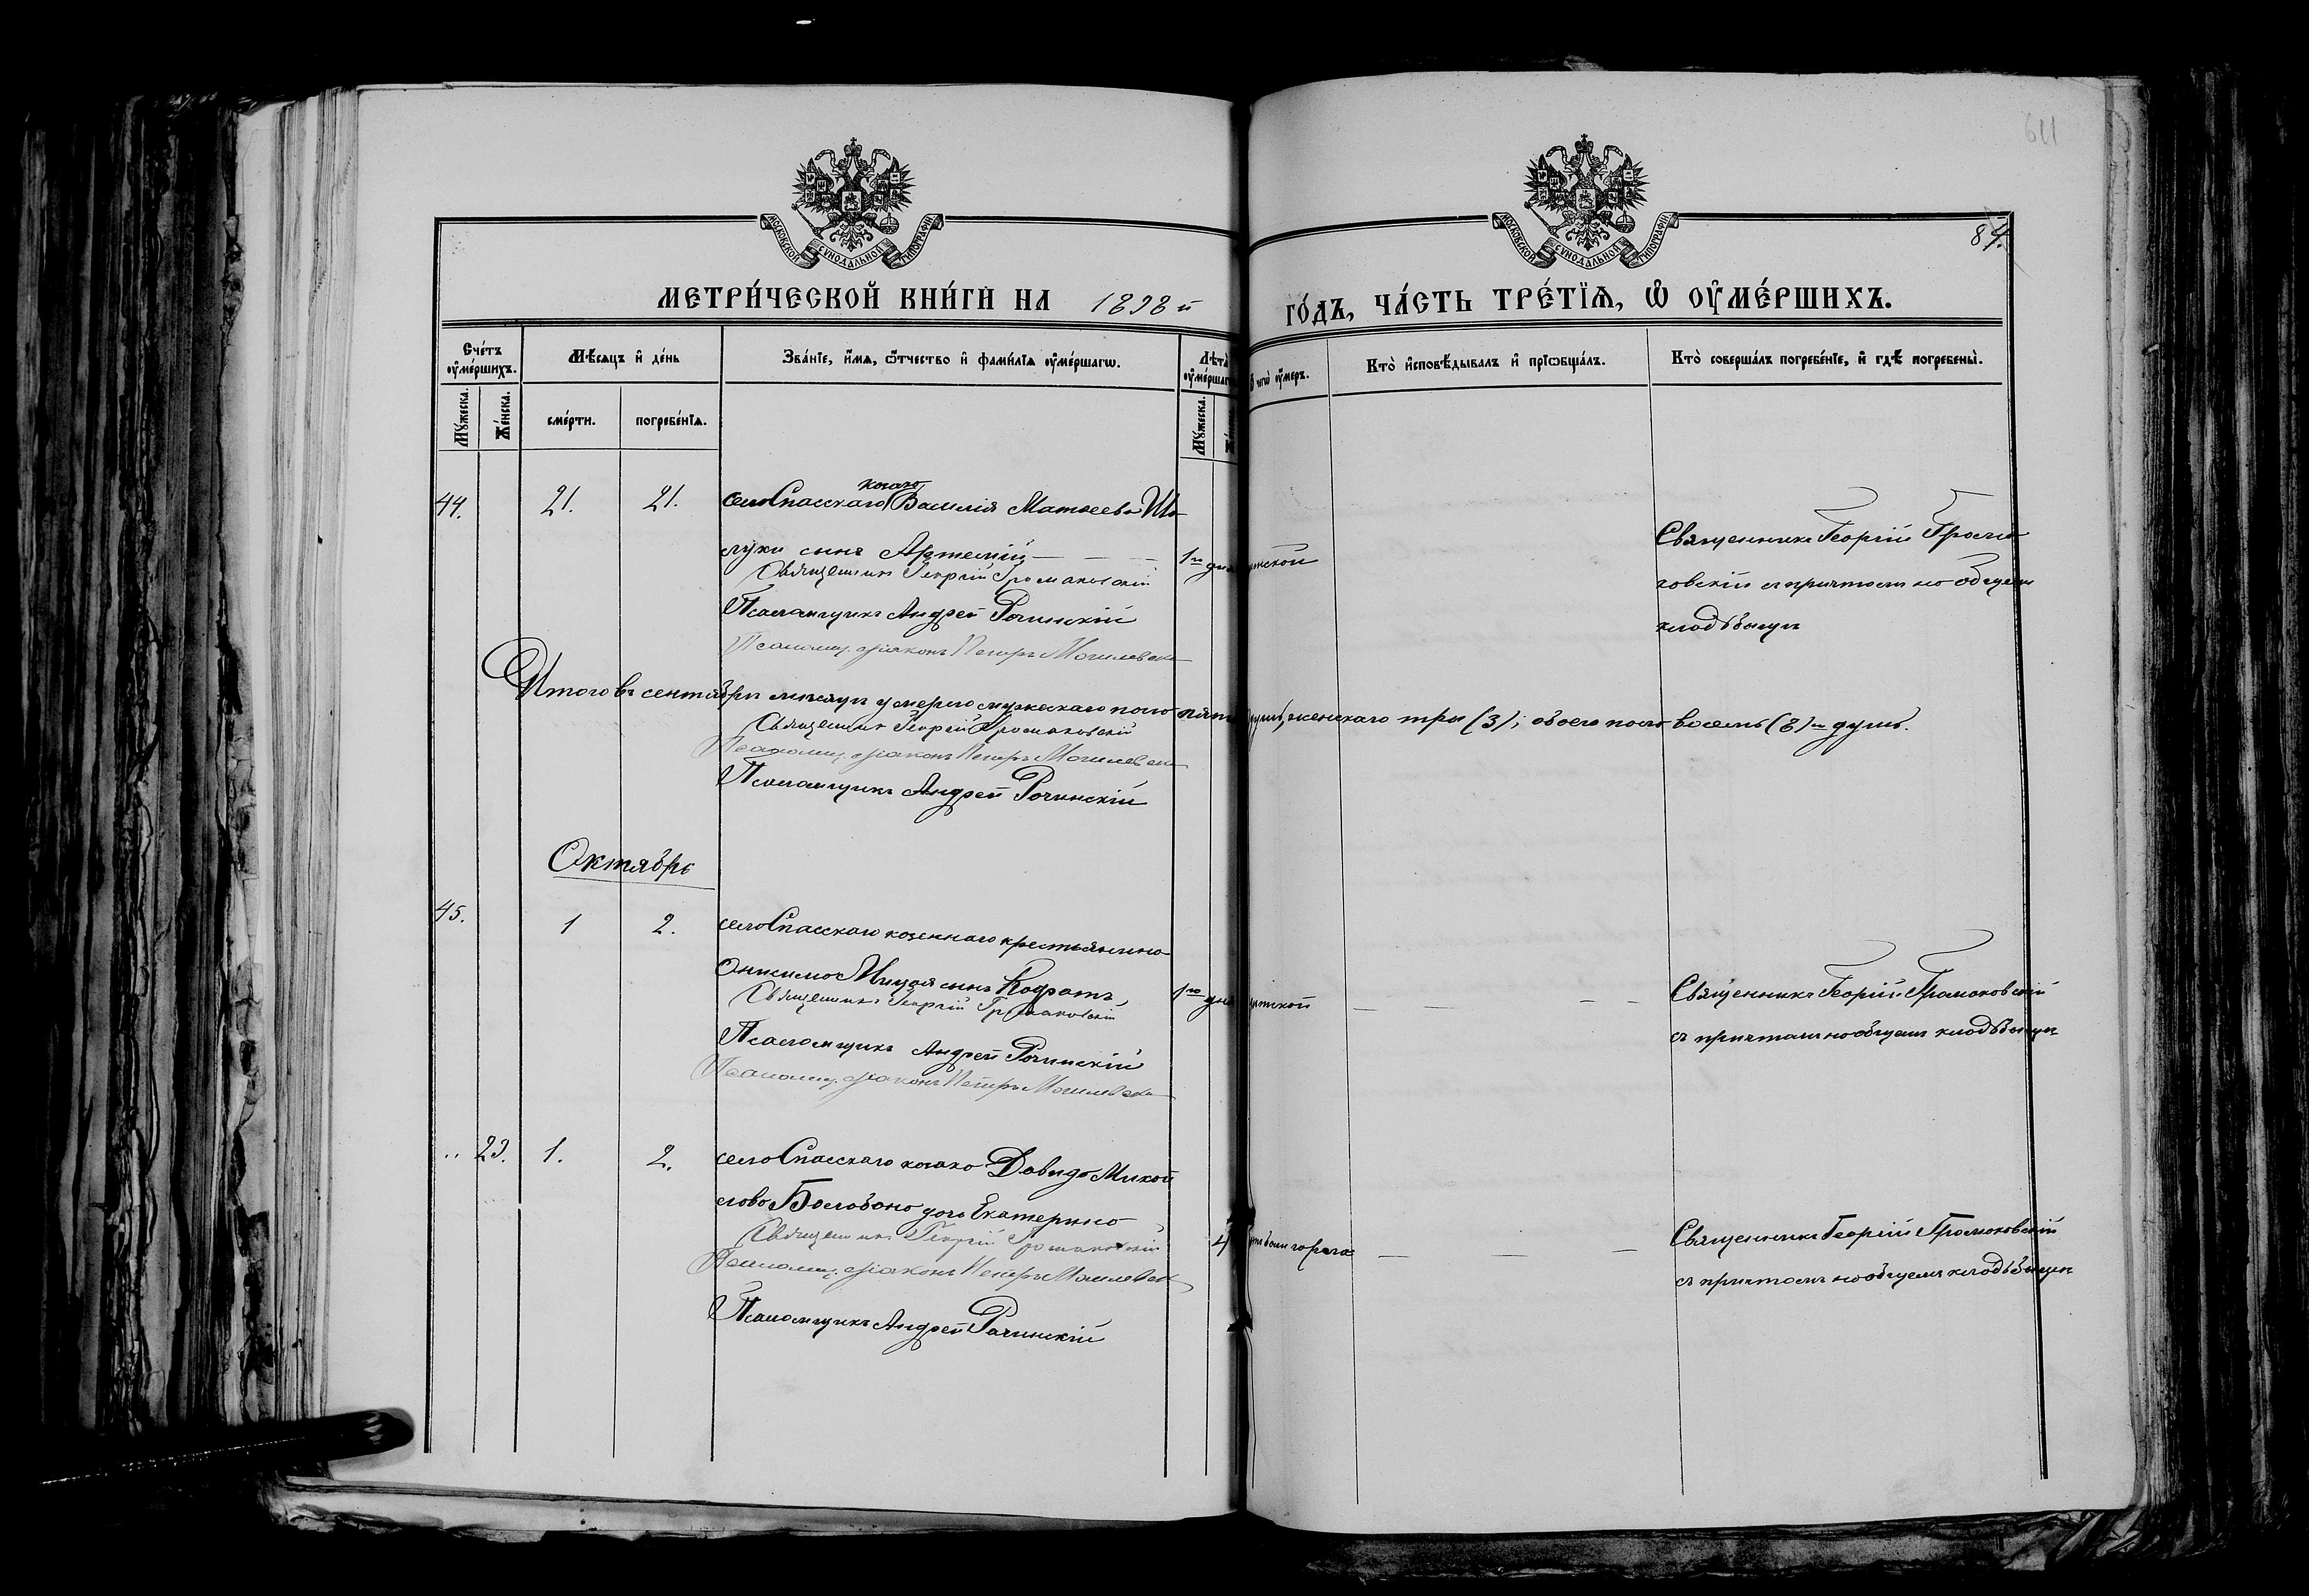 611
МОСКОВСКОЙ СѴНОДАЛЬНОЙ ТИПОГРАФІИ
МОСКОВСКОЙ СѴНОДАЛЬНОЙ ТИПОГРАФІИ
84.
МЕТРИ́ЧЕСКОЙ КНИ́ГИ НА 1898 й
ГО́ДЪ, ЧА́СТЬ ТРЕ́ТІѦ, Ѽ ОУ҆МЕ́РШИХЪ.
Сче́тъ оу҆ме́ршихъ.
Мѣ́сяцъ и҆ де́нь
Зва́нїе, и҆́мѧ, ѻ҆́тчество и҆ фами́лїѧ оу҆ме́ршагѡ.
Лѣта̀ оу҆ме́ршаг
чегѡ̀ оу҆́меръ.
Кто̀ и҆сповѣ́дывалъ и҆ прїѡбща́лъ.
Кто̀ соверша́лъ погребе́нїе, и҆ гдѣ̀ погребены̀.
Му́жеска.
Же́нска.
сме́рти.
погребе́нїѧ.
Му́жеска.
44. 21. 21. села Спасскаго казака Василія Матвеева Ша
луки сынъ Артемій 1го дня
Священникъ Георгій Громаковскій
Псаломщикъ Андрей Рочинскій
Псаломщ. діаконъ Петръ Могилевскі
Священникъ Георгій Грома
ковскій съ причтомъ на общемъ
кладбищѣ
Итого въ сентябрѣ мѣсяцѣ умерло мужескаго пола пять душъ, женскаго три (3); обоего пола восемь (8) душъ.
Священникъ Георгій Громаковскій
Псаломщ. діаконъ Петръ Могилевскі
Псаломщикъ Андрей Рочинскій
Октябрь
45. 1 2. села Спасскаго казеннаго крестьянина
Онисима сынъ Кодратъ 1го дня
Священникъ Георгій Громаковскій
Псаломщикъ Андрей Рочинскій
Псаломщ. діаконъ Петръ Могилевскі
Священникъ Георгій Громаковскій
съ причтомъ на общемъ кладбищѣ
23. 1. 2. села Спасскаго казака Давида Михай
лова Балабана дочь Екатерина 4
Священникъ Георгій Громаковскій
Псаломщ. діаконъ Петръ Могилевскі
Псаломщикъ Андрей Рочинскій
горла
Священникъ Георгій Громаковскій
съ причтомъ на общемъ кладбищѣ